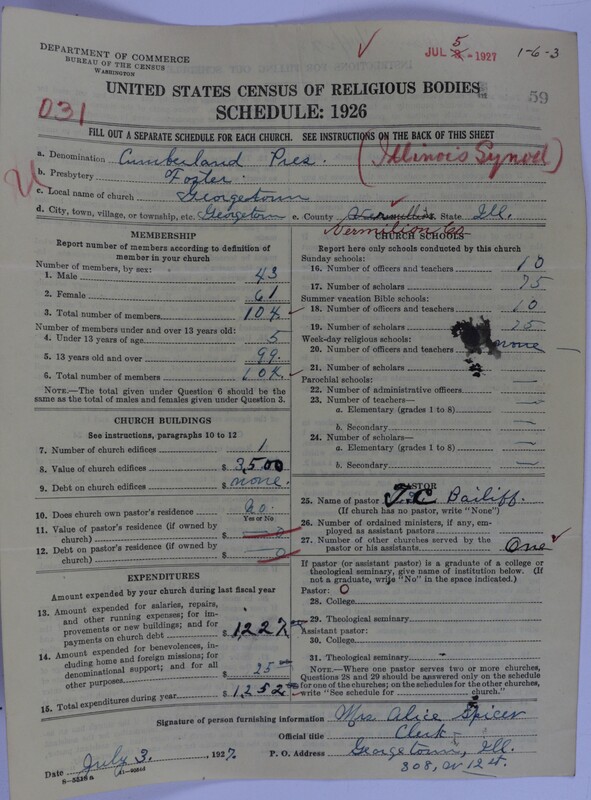 DEPARTMENT OF COMMERCE
BUREAU OF THE CENSUS
WASHINGTON
JUL 5 1927
1-6-3
UNITED STATES CENSUS OF RELIGIOUS BODIES
59
031
SCHEDULE: 1926
FILL OUT A SEPARATE SCHEDULE FOR EACH CHURCH. SEE INSTRUCTIONS ON THE BACK OF THIS SHEET
a. Denomination Cumberland Pres. (Illinois Synod)
b. Presbytery Foster.
c. Local name of church Georgetown
d. City, town, village, or township, etc. Georgetown e. County Vermillion State Ill.
Vermilion Co
MEMBERSHIP
Report number of members according to definition of member in your church
Number of members, by sex:
1. Male 43
2. Female 61
3. Total number of members 104
Number of members under and over 13 years old:
4. Under 13 years of age 5
5. 13 years old and over 99
6. Total number of members 104
NOTE.—The total given under Question 6 should be the same as the total of males and females given under Question 3.
CHURCH BUILDINGS
See instructions, paragraphs 10 to 12
7. Number of church edifices 1
8. Value of church edifices $ 3,500
9. Debt on church edifices $ none.
10. Does church own pastor's residence no.
Yes or No
11. Value of pastor's residence (if owned by church) $ 0
12. Debt on pastor's residence (if owned by church) $ 0
EXPENDITURES
Amount expended by your church during last fiscal year
13. Amount expended for salaries, repairs, and other running expenses; for improvements or new buildings; and for payments on church debt $ 1227
14. Amount expended for benevolences, including home and foreign missions; for denominational support; and for all other purposes $ 25 00
15. Total expenditures during year $ 1252
CHURCH SCHOOLS
Report here only schools conducted by this church
Sunday schools:
16. Number of officers and teachers 10
17. Number of scholars 75
Summer vacation Bible schools:
18. Number of officers and teachers 10
19. Number of scholars 75
Week-day religious schools:
20. Number of officers and teachers none —
21. Number of scholars —
Parochial schools:
22. Number of administrative officers —
23. Number of teachers—
a. Elementary (grades 1 to 8) —
b. Secondary —
24. Number of scholars—
a. Elementary (grades 1 to 8) —
b. Secondary —
PASTOR
25. Name of pastor T.C. Bailiff.
(If church has no pastor, write "None")
26. Number of ordained ministers, if any, employed as assistant pastors
27. Number of other churches served by the pastor or his assistants One
If pastor (or assistant pastor) is a graduate of a college or theological seminary, give name of institution below. (If not a graduate, write "No" in the space indicated.)
Pastor: O
28. College
29. Theological seminary
Assistant pastor:
30. College
31. Theological seminary
NOTE.—Where one pastor serves two or more churches, Questions 28 and 29 should be answered only on the schedule for one of the churches; on the schedules for the other churches, write "See schedule for church."
Signature of person furnishing information Mrs Alice Spicer
Official title Clerk
Date July 3. , 1927. P. O. Address Georgetown, Ill.
308, W 12 st.
8-5518 a